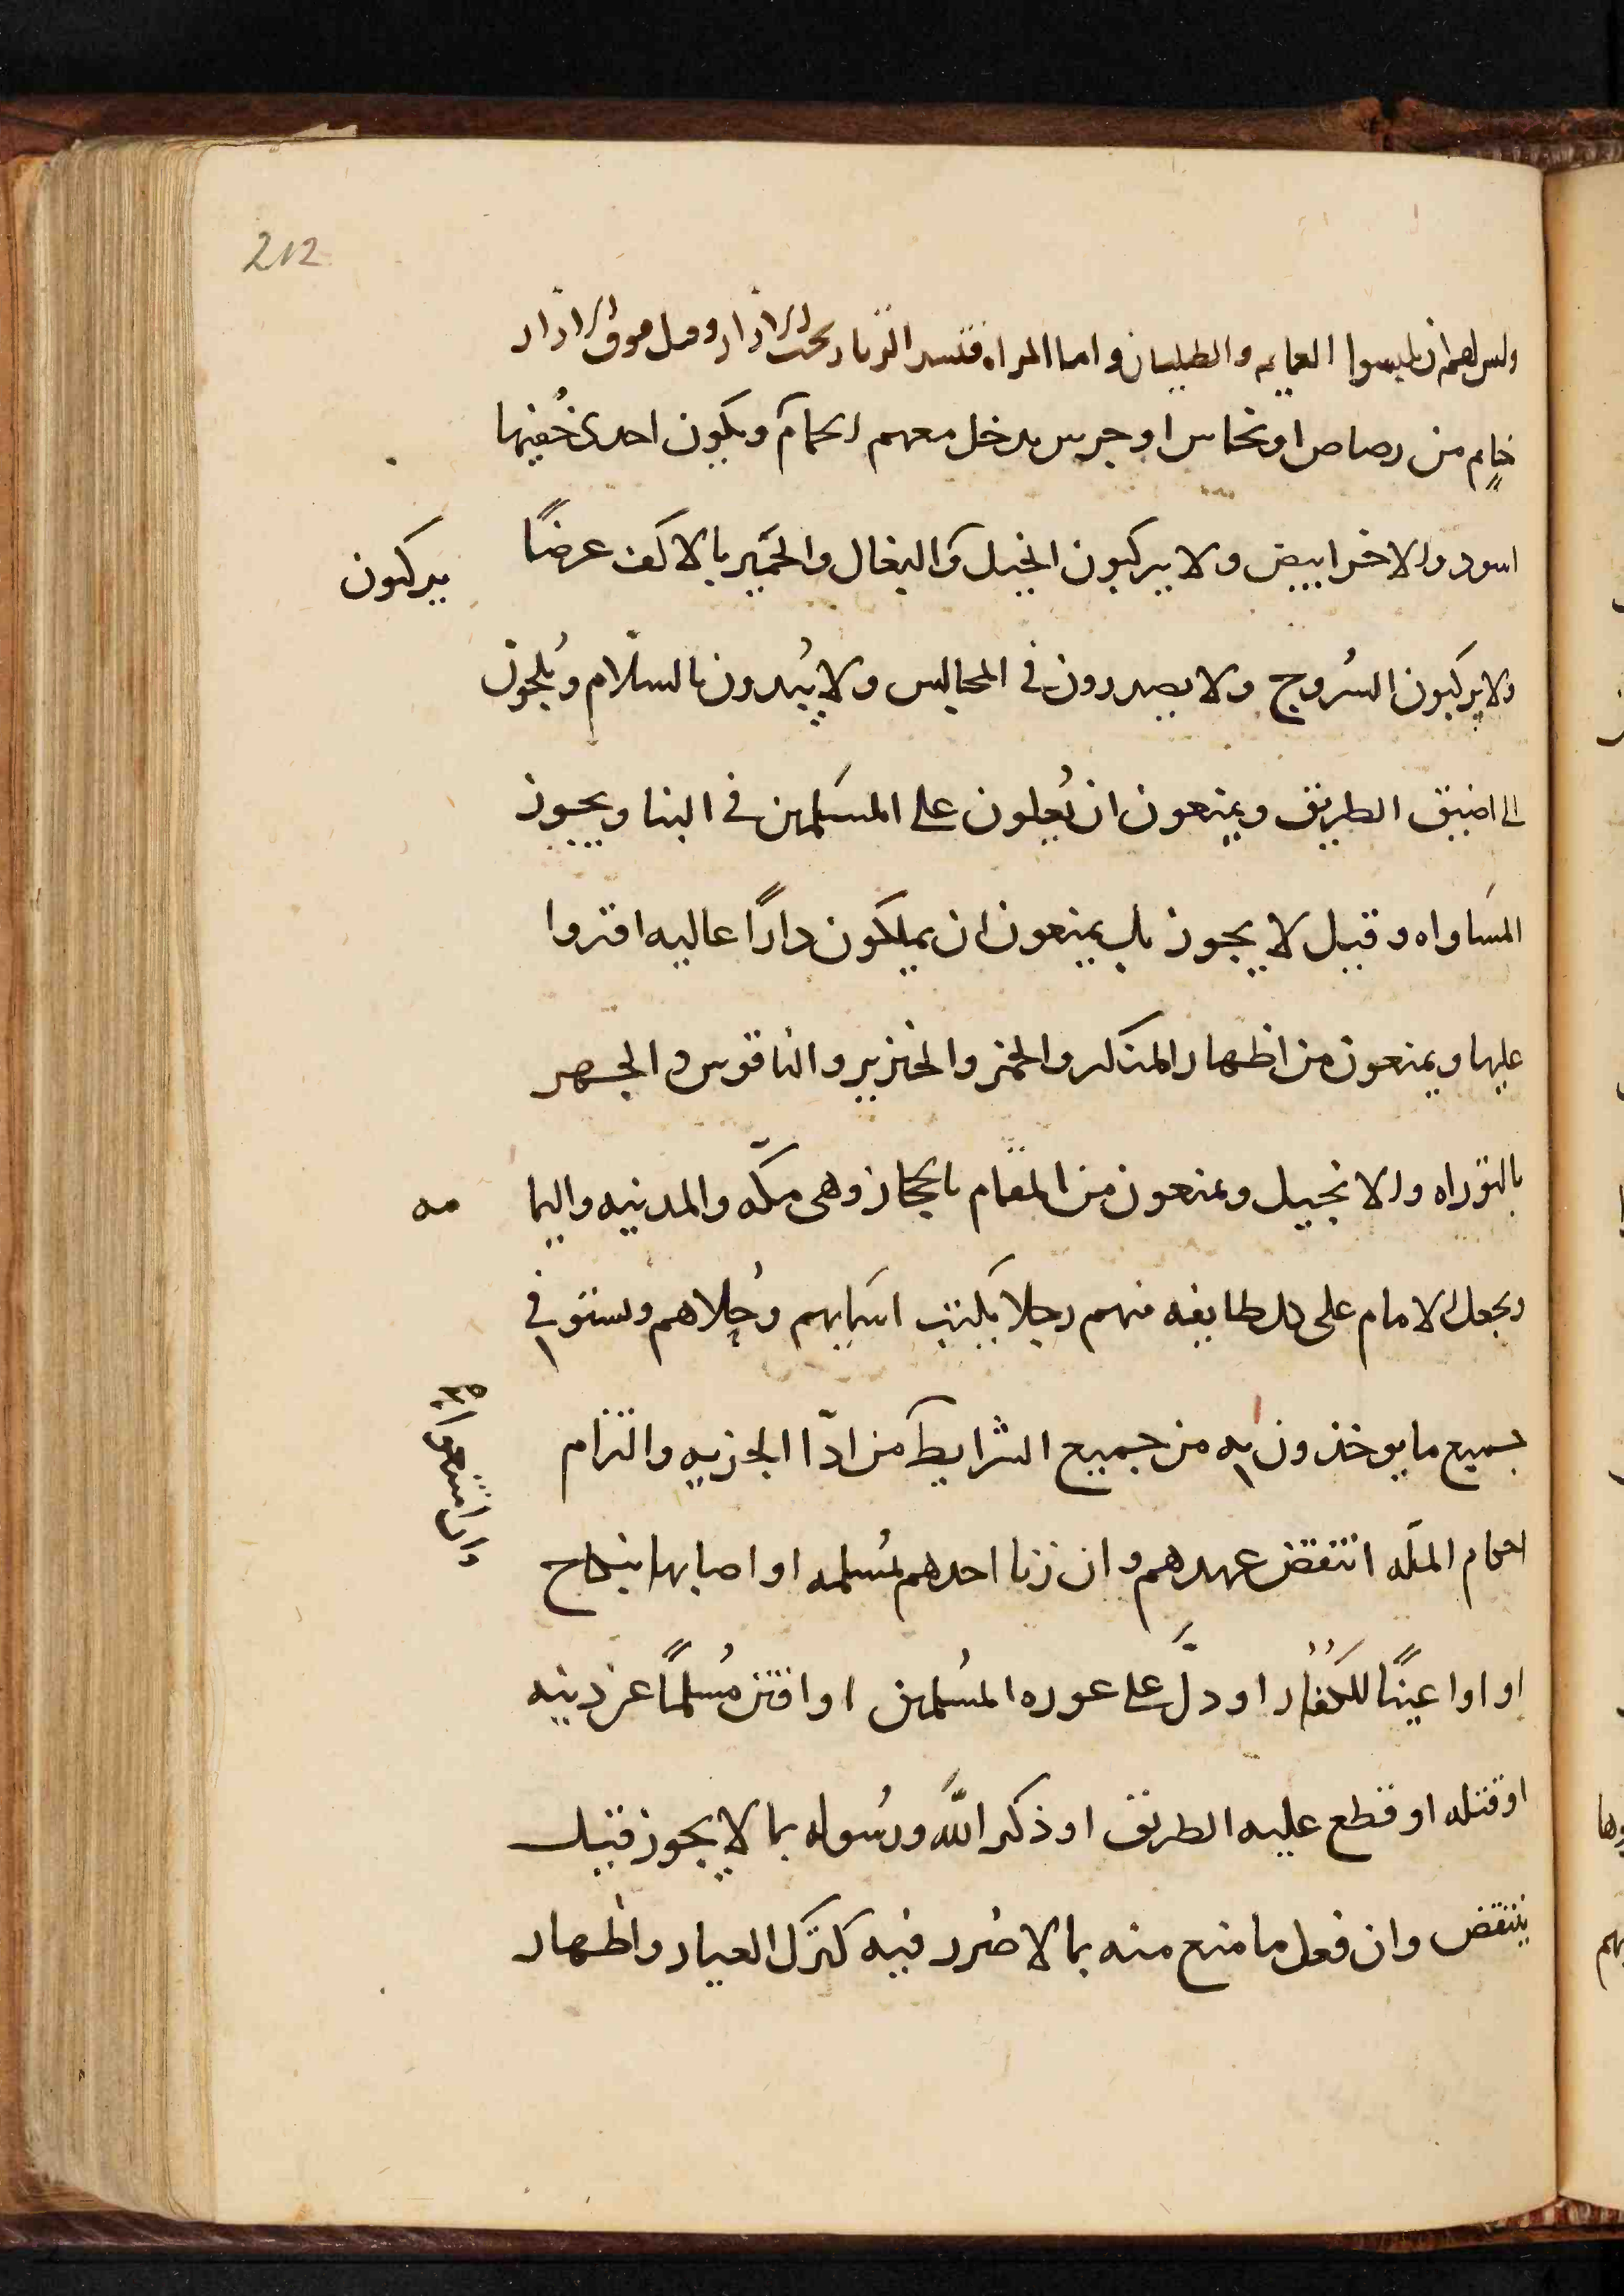 212
وليس لهم ان يلبسوا العمايم والطيلسان واما المراه فتشد الزنار تحت الازار وقيل فوق الازار
خاتم من رصاص او نحاس او جرس يدخل معهم الحمام ويكون احدى خُفيها
اسود والاخر ابيض ولا يركبون الخيل والبغال والحَمير بالاكف عرضًا
يركبون
ولا يركبون السُروج ولا يصدرون في المجالس ولا يُبدون بالسلام ويُلجون
الى اضيق الطريق ويمنعون ان يُعلون على المسلمين في البنا ويجوز
المساواه وقيل لا يجوز بل يمنعون ان يملكون دارًا عاليه اقروا
عليها ويمنعون من اظهار المنكر والخمر والخنزير والناقوس والجهر
بالتوراه والانجيل ويمنعون من المقام بالحجاز وهى مكّه والمدينه واليما
مه
ويجعل الامام على كل طايفه منهم رجلا يكتب اسمايهم وحُلاهم ويستوفي
جميع ما يوخذون به من جميع الشرايط من ادّا الجزيه والتزام
وان امتنعوا
احكام الملّه انتقض عهدهم وان زنا احدهم بمُسلمه او اصابها بنكاح
او اوا عينًا للكُفار او دلَّ على عوره المُسلمين او افتن مُسلمًا عن دينه
او قتله او قطع عليه الطريق او ذكر اللّه ورسُوله بما لا يجوز قيل
ينتقض وان فعل ما منع منه بما لا ضرر فيه كترك الغيار واظهار